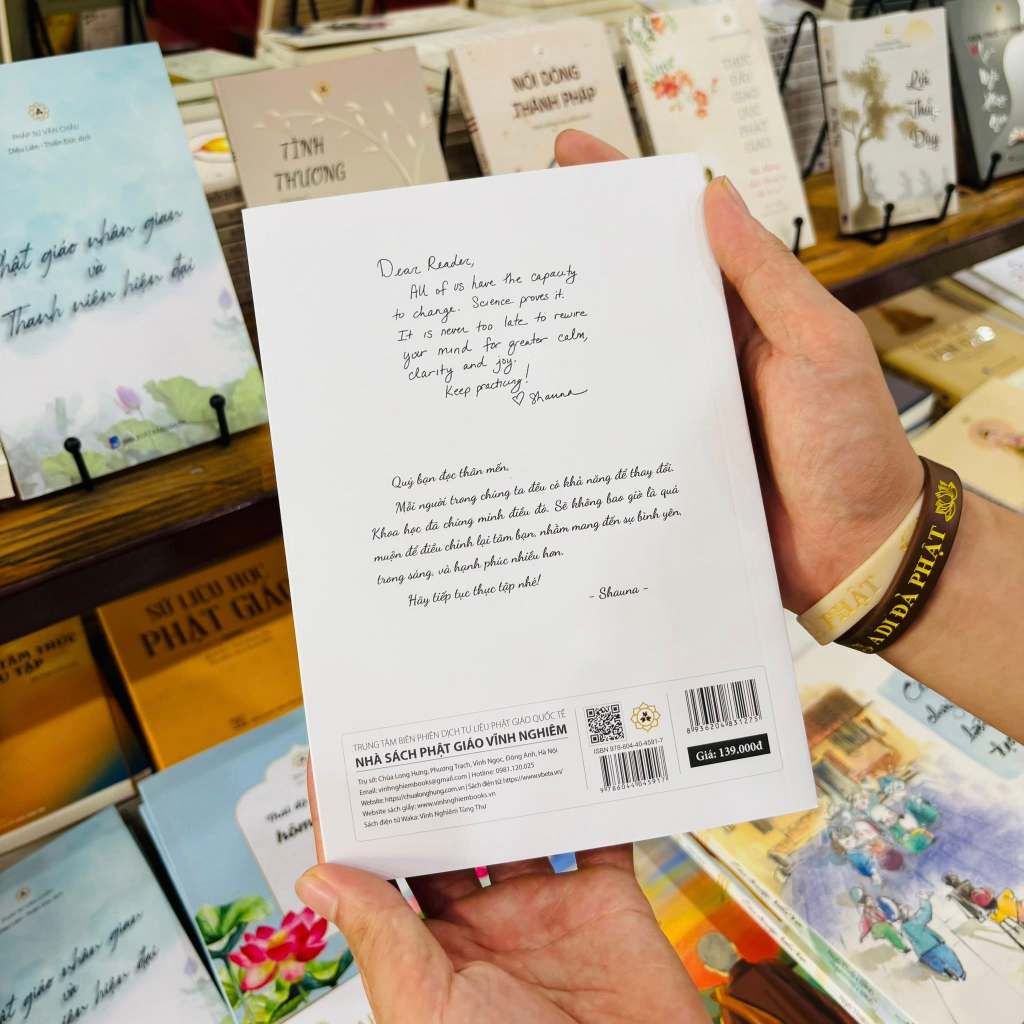 PHÁP SƯ VĂN CHÂU
Diệu Liên - Thiền Đức, dịch
Phật giáo nhân gian
và
Thanh niên hiện đại
TÌNH
THƯƠNG
NỐI DÒNG
THÁNH PHÁP
THỰC
Lời
Thức
Dear Reader,
All of us have the capacity
to change. Science proves it.
It is never too late to rewire
your mind for greater calm,
clarity and joy.
Keep practicing!
♡ Shauna
Quý bạn đọc thân mến,
Mỗi người trong chúng ta đều có khả năng để thay đổi.
Khoa học đã chứng minh điều đó. Sẽ không bao giờ là quá
muộn để điều chỉnh lại tâm bạn, nhằm mang đến sự bình yên,
trong sáng, và hạnh phúc nhiều hơn.
Hãy tiếp tục thực tập nhé!
- Shauna -
TRUNG TÂM BIÊN PHIÊN DỊCH TƯ LIỆU PHẬT GIÁO QUỐC TẾ
NHÀ SÁCH PHẬT GIÁO VĨNH NGHIÊM
Trụ sở: Chùa Long Hưng, Phương Trạch, Vĩnh Ngọc, Đông Anh, Hà Nội
Email: vinhnghiembooks@gmail.com | Hotline: 0981.120.025
Website: https://chualonghung.com.vn | Sách điện tử: https://www.vbeta.vn/
Website sách giấy: www.vinhnghiembooks.vn
Sách điện tử Waka: Vĩnh Nghiêm Tùng Thư
ISBN 978-604-40-4591-7
9786044045917
8936204831275
Giá: 139.000đ
PHẬT
A DI ĐÀ PHẬT
SỬ LIỆU HỌC
PHẬT GIÁO
TÂM THỨC
TU TẬP
Thái độ
hôm
nhật giáo nhân gian
và
niên hiện đại